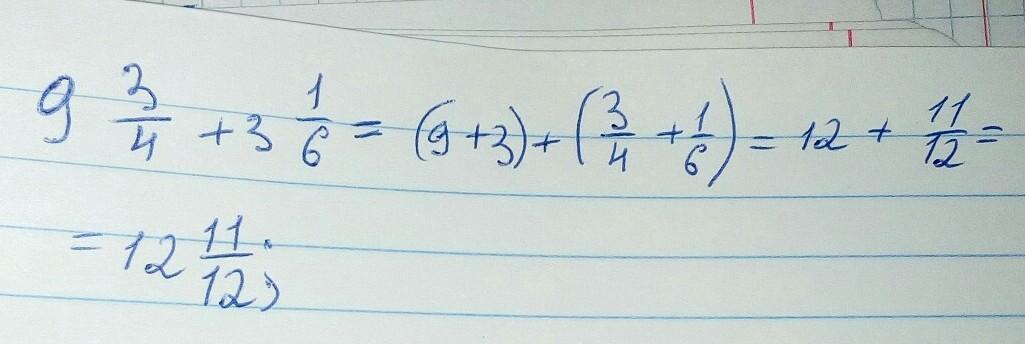 9 3/4 + 3 1/6 = (9 + 3) + (3/4 + 1/6) = 12 + 11/12 =
= 12 11/12;